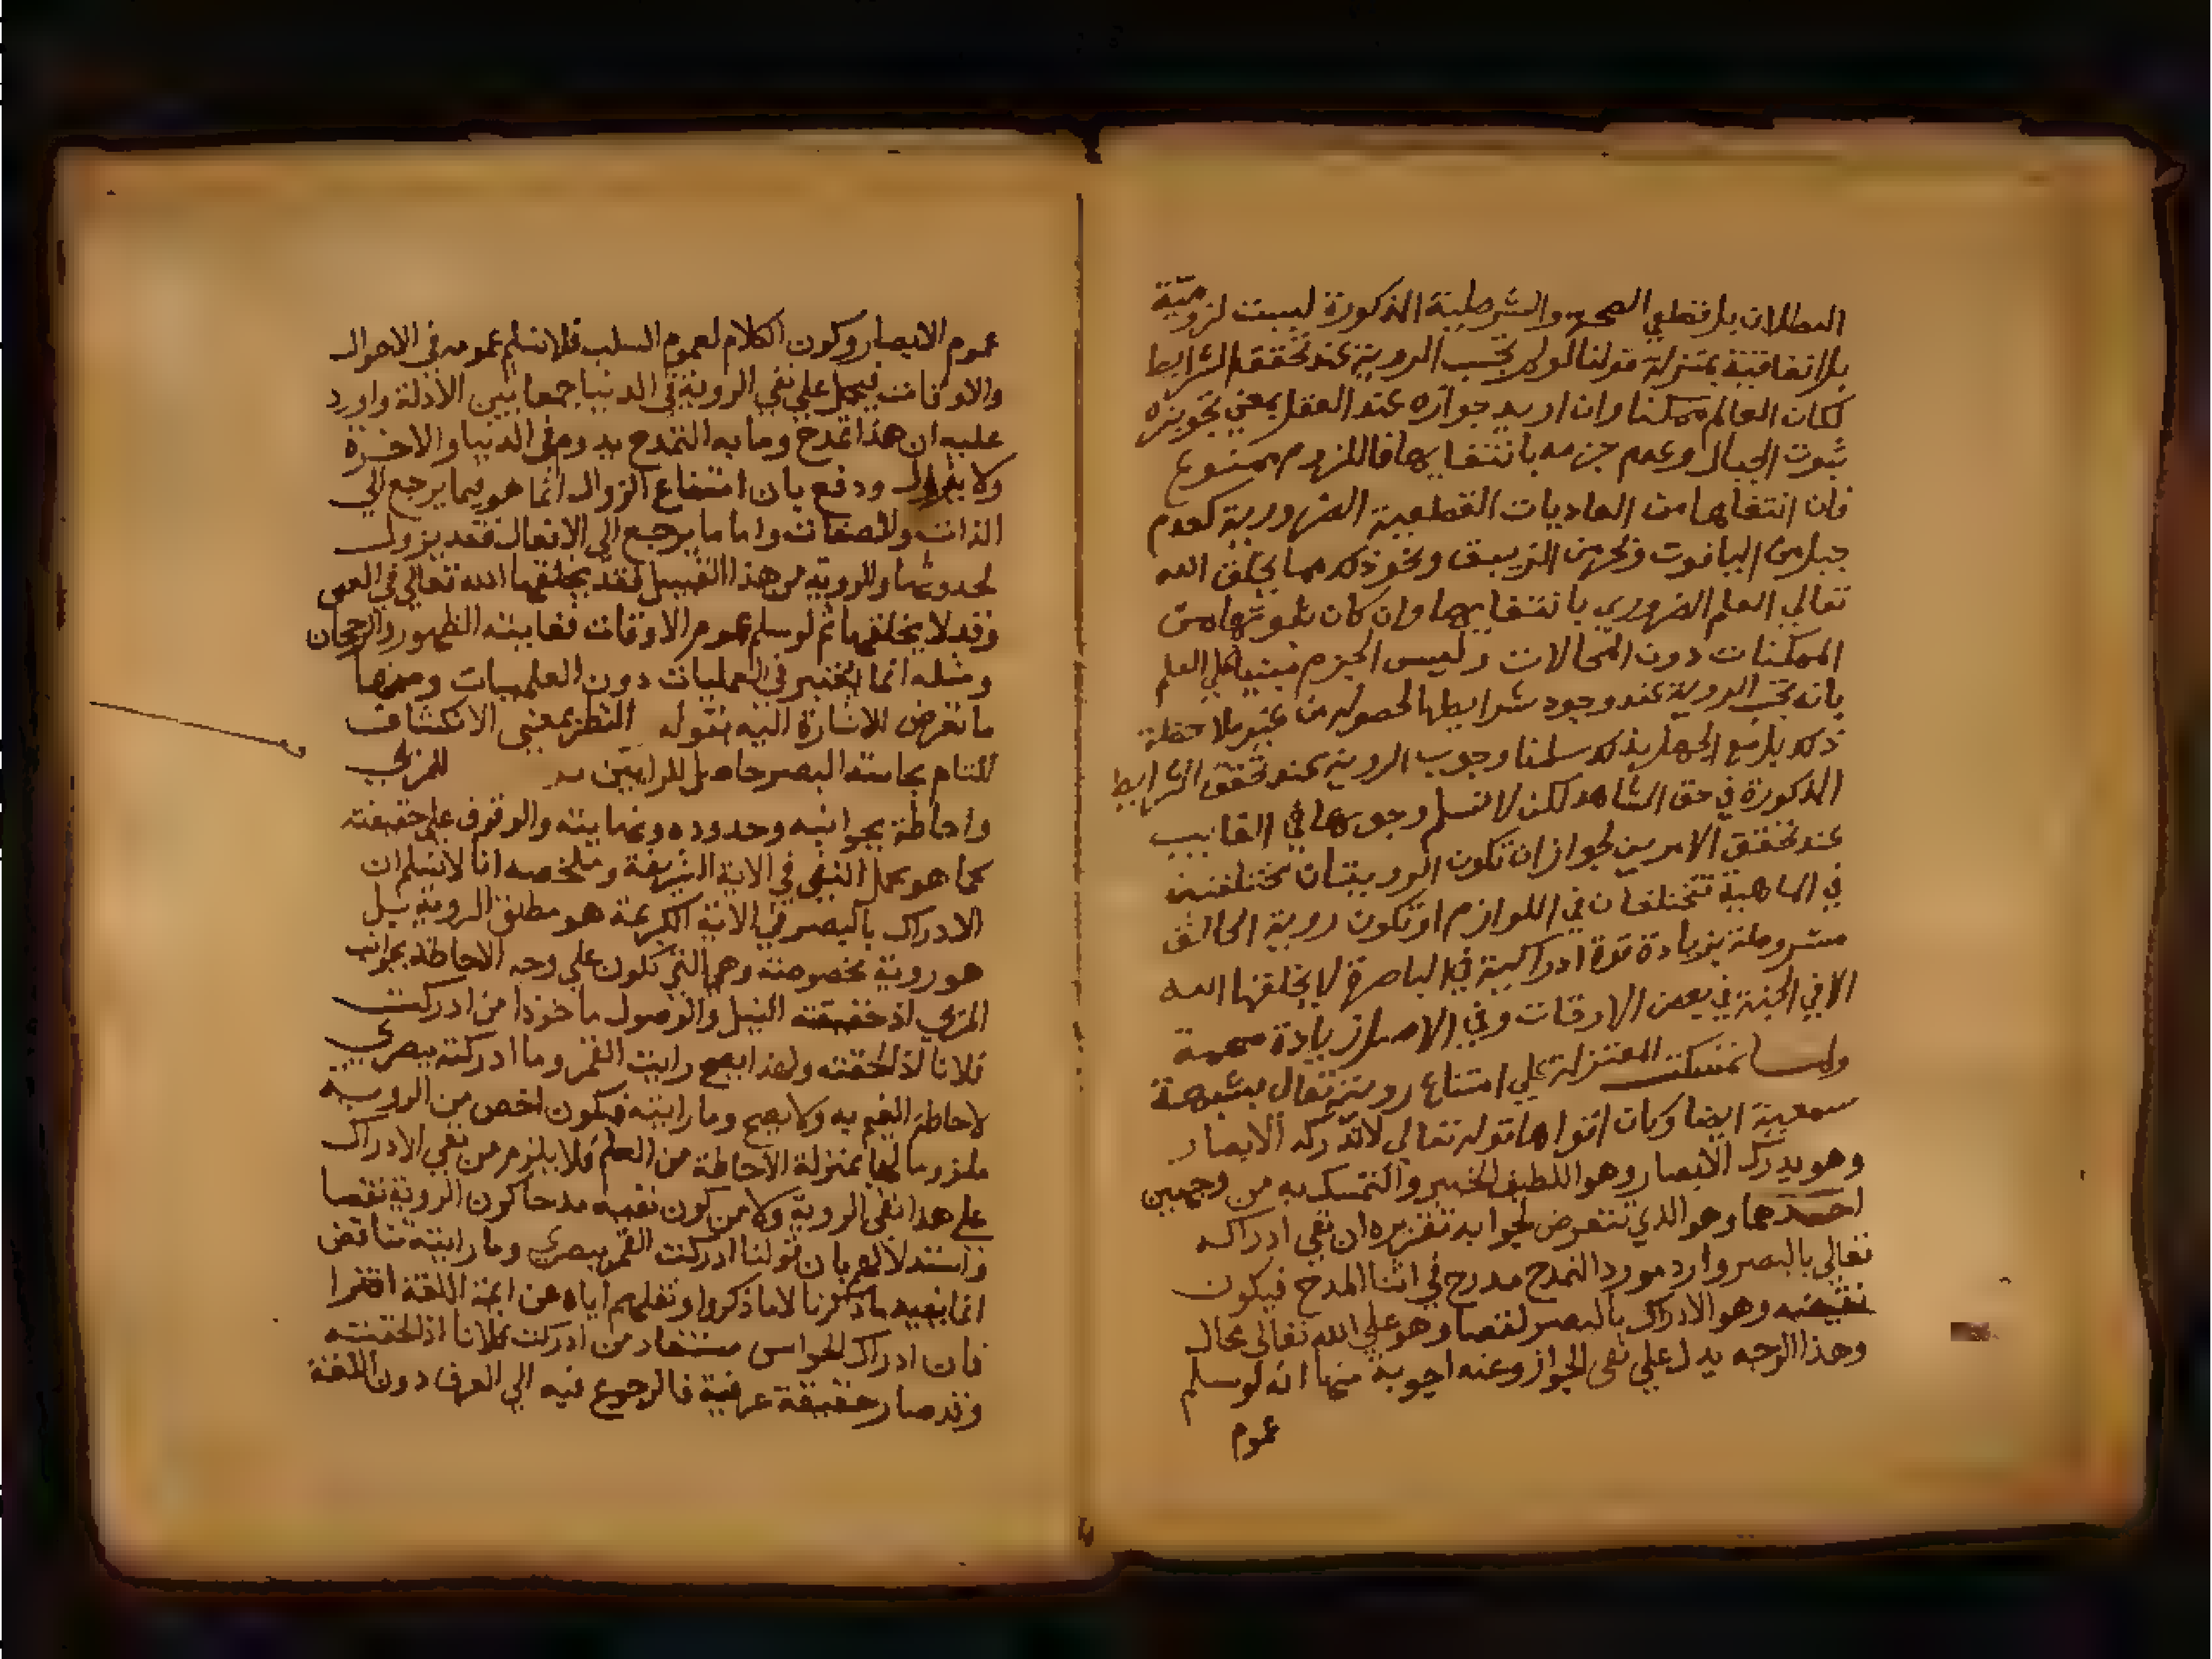 البطلان بل قطعي الصحة والشرطية المذكورة ليست لزومية
بل اتفاقية بمنزلة قولنا لو لم تجب الروية عند تحقق الشرايط
لكان العالم ممكنا وان اريد جوازه عند العقل بمعني تجويزه
ثبوت الجبال وعدم جزمه بانتفايها فاللزوم ممنوع
فان انتفاها من العاديات القطعية الضرورية كعدم
جبل من الياقوت وبحر من الزيبق ونحو ذلك مما يخلق الله
تعالي العلم الضروري بانتفايها وان كان ثبوتها من
الممكنات دون المحالات وليس الجزم مبنيا علي العلم
بانه تجب الروية عند وجود شرايطها لحصوله من غير ملاحظة
ذلك بل مع الجهل بذلك سلمنا وجوب الروية عند تحقق الشرايط
المذكورة في حق الشاهد لكن لا نسلم وجوبها في الغايب
عند تحقق الامرين لجواز ان تكون الرويتان مختلفتين
في الماهية تختلفان في اللوازم او تكون روية الخالق
مشروطة بزيادة قوة ادراكية في الباصرة لا يخلقها الله
الا في الجنة في بعض الاوقات وفي الاصل زيادة مهمة
ولما تمسكت المعتزلة علي امتناع رويته تعالي بشبهة
سمعية ايضا وكان اقواها قوله تعالي لا تدركه الابصار
وهو يدرك الابصار وهو اللطيف الخبير والتمسك به من وجهين
احدهما وهو الذي تتعرض لجوابه تقريره ان نفي ادراكه
تعالي بالبصر وارد مورد التمدح مدرج في اثنا المدح فيكون
نقيضه وهو الادراك بالبصر نقصا وهو علي الله تعالي محال
وهذا الوجه يدل علي نفي الجواز وعنه اجوبة منها انه لو سلم
عموم
عموم الابصار وكون الكلام لعموم السلب فلا نسلم عمومه في الاحوال
والاوقات فيحمل علي نفي الروية في الدنيا جمعا بين الادلة واورد
عليه ان هذا تمدح وما به التمدح يدوم في الدنيا والاخرة
ولا يزول ودفع بان امتناع الزوال انما هو فيما يرجع الي
الذات والصفات واما ما يرجع الي الافعال فقد يزول
لحدوثها والروية من هذا القبيل فقد يخلقها الله تعالي في العين
وقد لا يخلقها ثم لو سلم عموم الاوقات فغايته الظهور والرجحان
ومثله انما يعتبر في العمليات دون العلميات ومنها
ما تعرض للاشارة اليه بقوله النظر بمعني الانكشاف
التام بحاسة البصر حاصل للرايين بد للمرئي
واحاطة بجوانبه وحدوده ونهايته والوقوف علي حقيقته
كما هو محمل النفي في الاية الشريفة وملخصه انا لا نسلم ان
الادراك بالبصر في الاية الكريمة هو مطلق الروية بل
هو روية مخصوصة وهي التي تكون علي وجه الاحاطة بجوانب
المرئي اذ حقيقته النيل والوصول ماخوذا من ادركت
فلانا اذ لحقته ولهذا يصح رايت القمر وما ادركته ببصري
لاحاطة الغيم به ولا يصح وما رايته فيكون اخص من الروية
ملزوما لها بمنزلة الاحاطة من العلم فلا يلزم من نفي الادراك
علي هذا نفي الروية ولا من كون نفيه مدحا كون الروية نقصا
واستدلالهم بان قولنا ادركت القمر ببصري وما رايته تناقض
انما يفيد ما ذكرنا لا ما ذكروا ونقلهم اياه عن ايمة اللغة افترا
فان ادراك الحواس مستفاد من ادركت فلانا اذ لحقته
وقد صار حقيقة عرفية فالرجوع فيه الي العرف دون اللغة